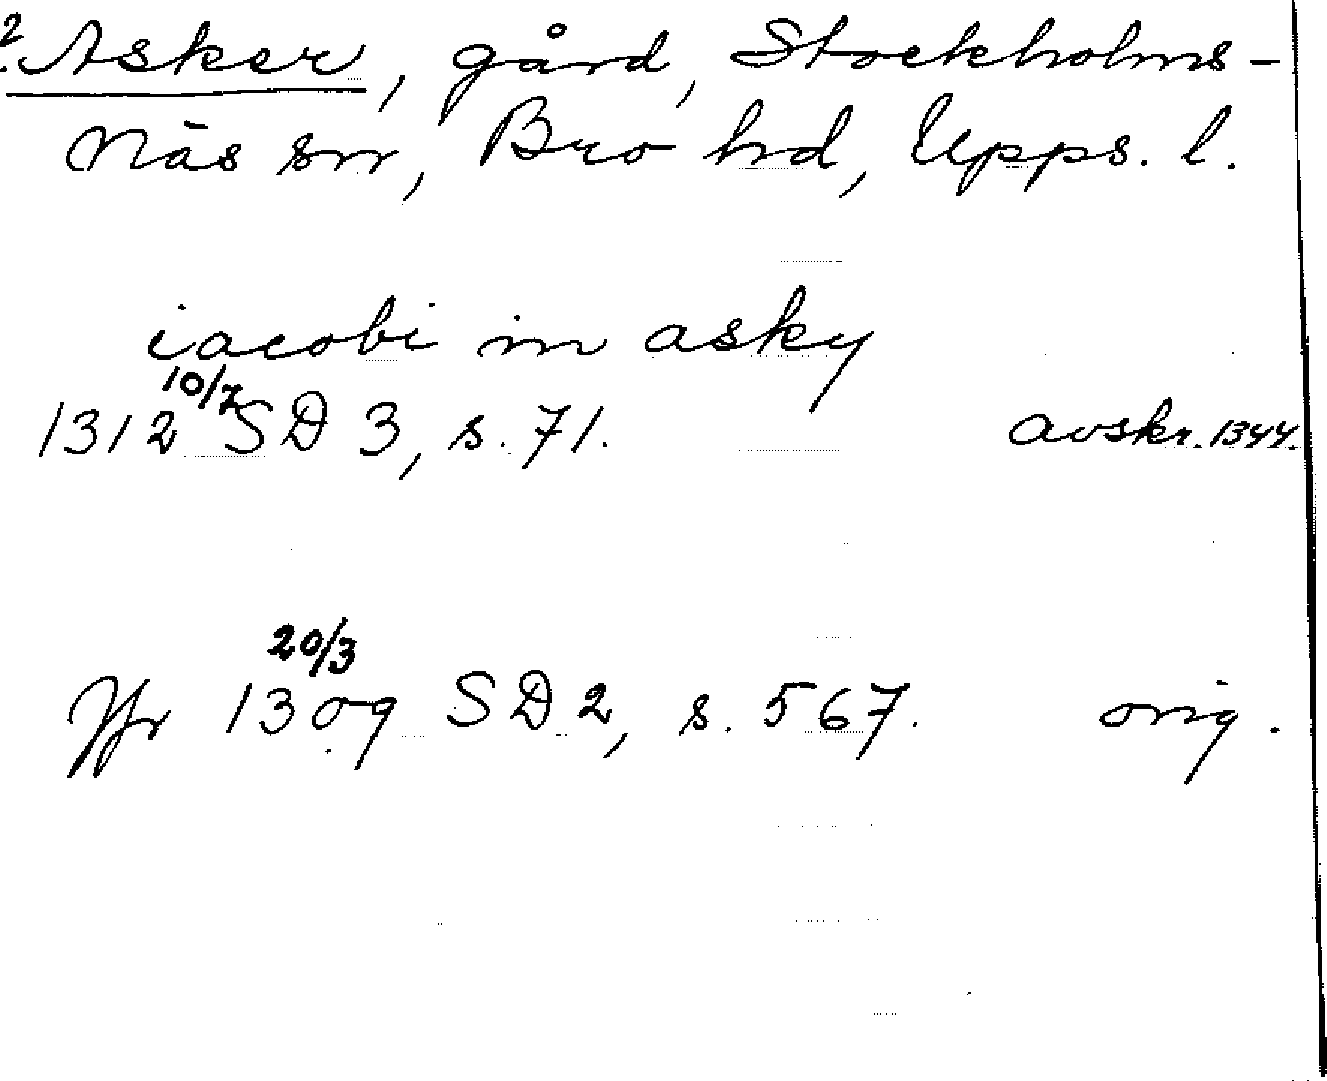 ? Asker, gård, Stockholms-
Näs sn, Bro hd, Upps. l.
iacobi in asky
1312 10/7 SD 3, s. 71. avskr. 1344.
Jfr 1309 20/3 SD 2, s. 567. orig.